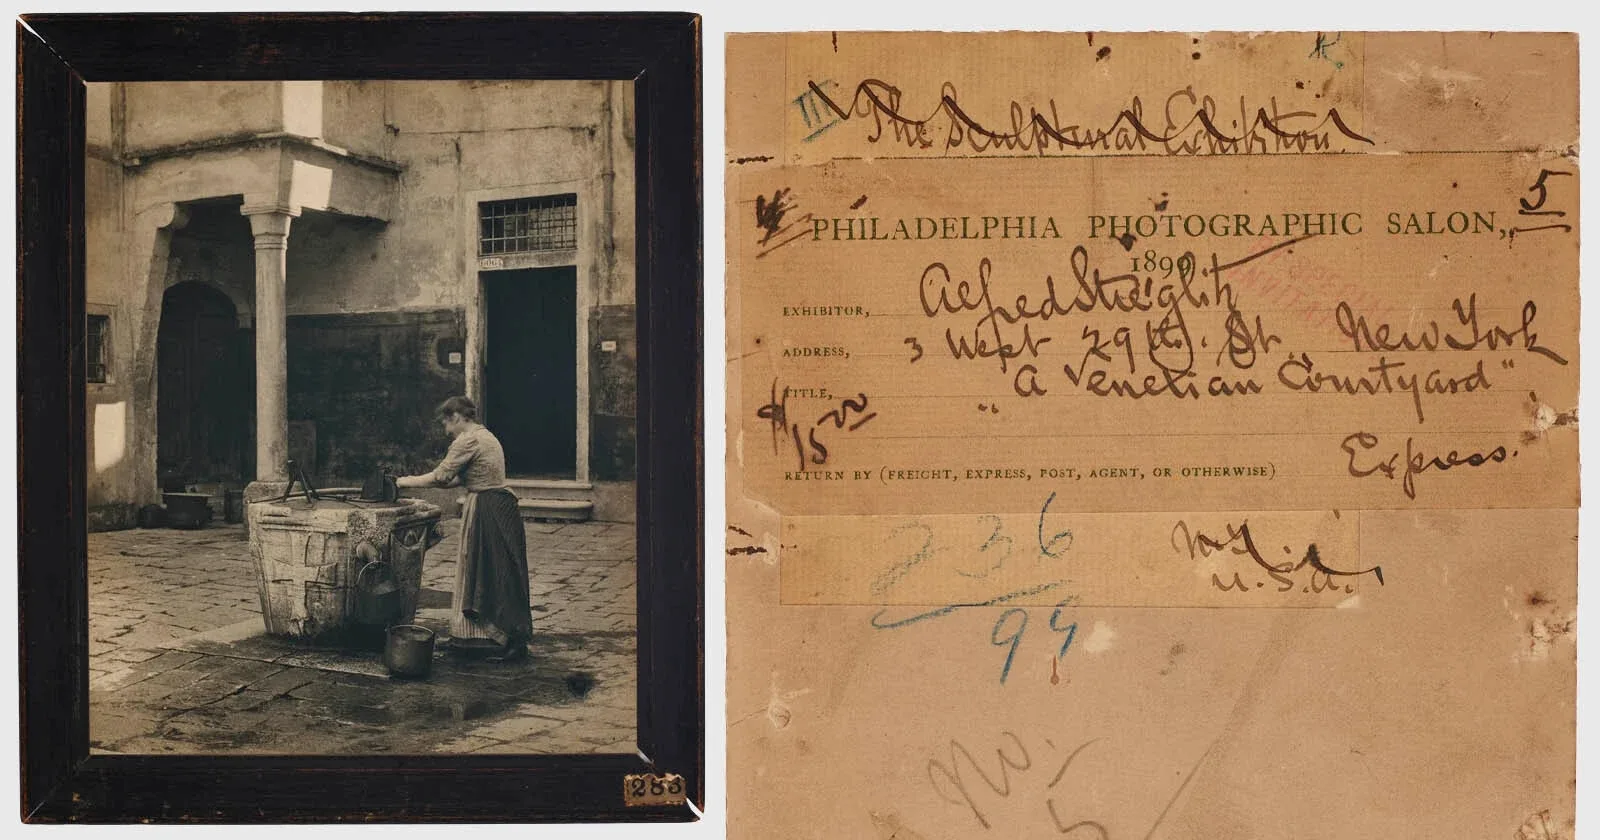 6064
283
III The Sculptural Exhibition
5
PHILADELPHIA PHOTOGRAPHIC SALON,
1899
EXHIBITOR, Alfred Stieglitz
ADDRESS, 3 West 29th. St. New York
TITLE, "A Venetian Courtyard"
$15.00
RETURN BY (FREIGHT, EXPRESS, POST, AGENT, OR OTHERWISE) Express.
236
N.Y.
U.S.A.
99
No.
5